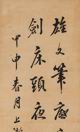 雄文筆底
劍床頭夜
甲申春月上澣